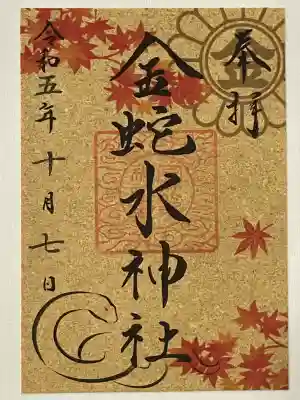 奉拝
金蛇水神社
令和五年十月七日